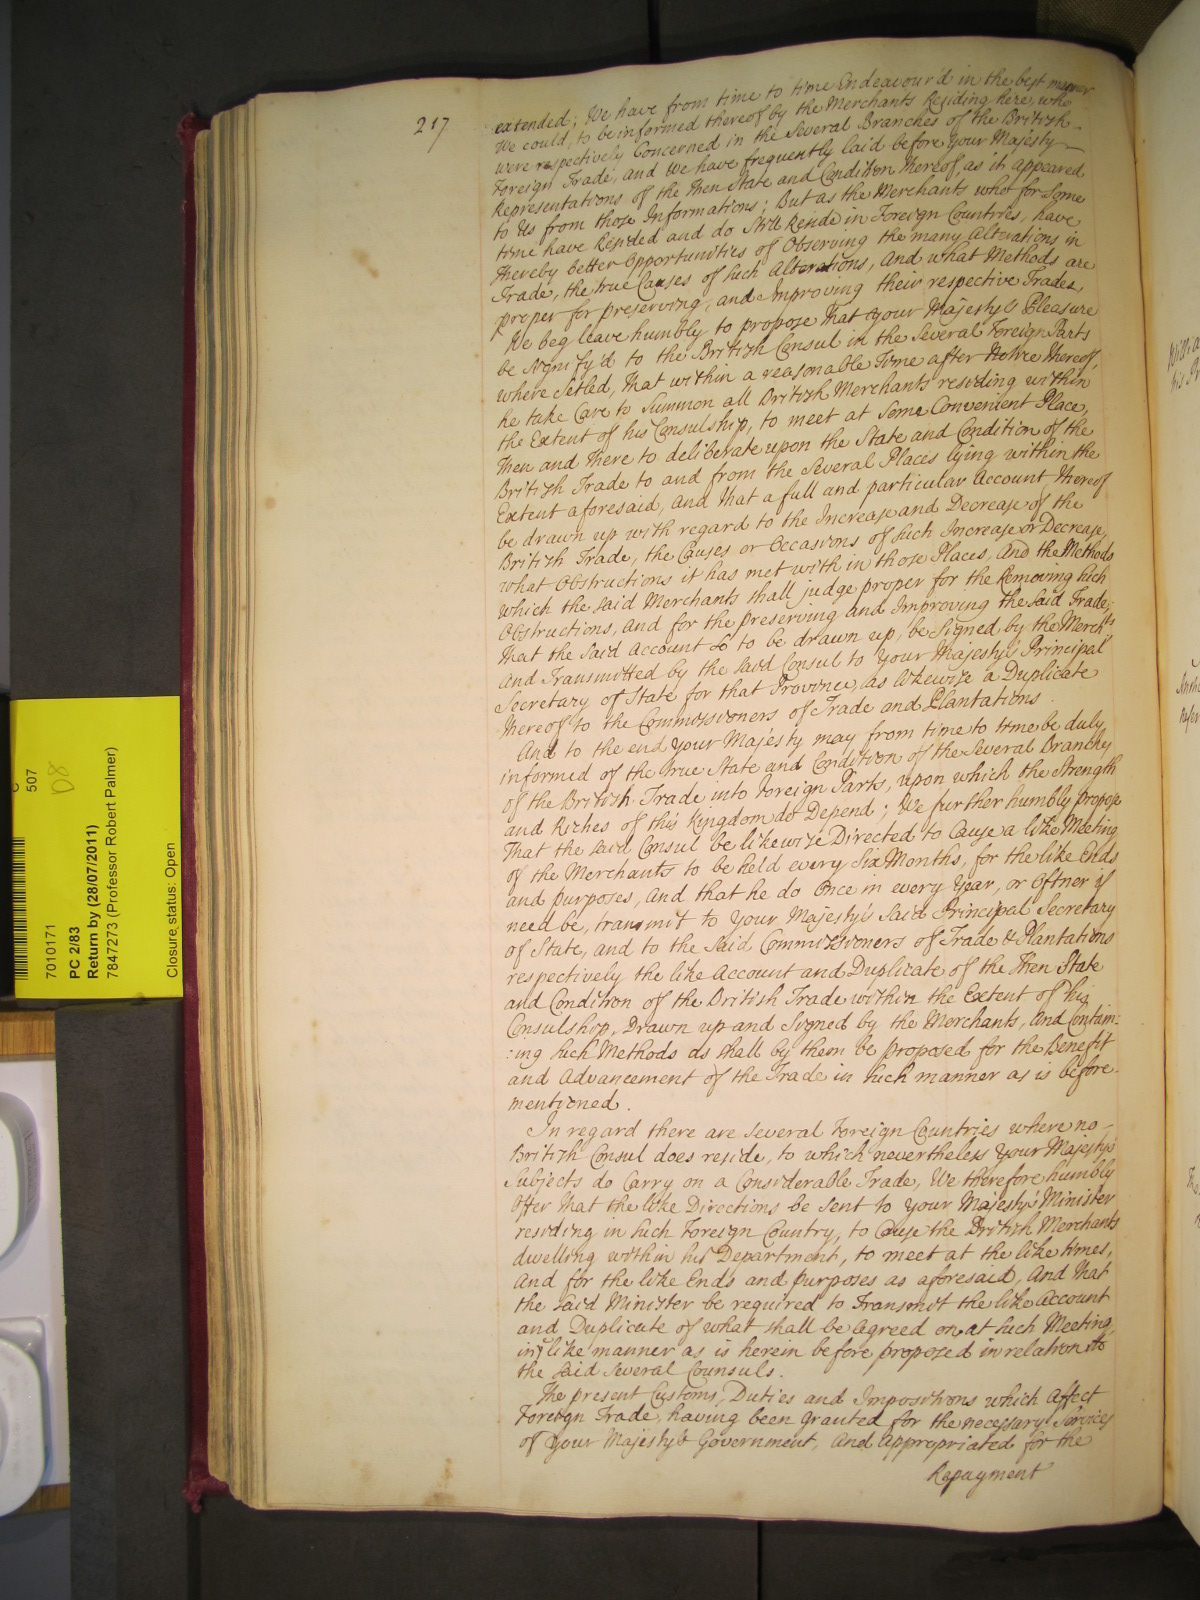 217
extended; We have from time to time Endeavour'd in the best manner
We could, to be informed thereof by the Merchants Residing here, who
were respectively Concerned in the Several Branches of the British
Foreign Trade, and We have frequently laid before your Majesty
Representations of the then State and Condition thereof, as it appeared
to Us from those Informations; But as the Merchants who for Some
time have Resided and do Still Reside in Foreign Countries, have
thereby better Opportunities of Observing the many Alterations in
Trade, the true Causes of such Alterations, And what Methods are
proper for preserving, and Improving their respective Trades,
We beg leave humbly to propose That Your Majesty's Pleasure
be signify'd to the British Consul in the Several Foreign Parts
where Setled, That within a reasonable Time after Notice thereof,
he take Care to Summon all British Merchants residing within
the Extent of his Consulship, to meet at Some Convenient Place,
then and there to deliberate upon the State and Condition of the
British Trade to and from the Several Places lying within the
Extent aforesaid, And that a full and particular Account thereof
be drawn up with regard to the Increase and Decrease of the
British Trade, the Causes or Occasions of such Increase or Decrease,
what Obstructions it has met with in those Places, And the Methods
which the said Merchants shall judge proper for the Removing such
Obstructions, And for the preserving and Improving the said Trade;
that the said Account so to be drawn up, be Signed by the Merchts
and Transmitted by the said Consul to Your Majesty's Principal
Secretary of State for that Province, as likewise a Duplicate
thereof to the Commissioners of Trade and Plantations.
And to the end Your Majesty may from time to time be duly
informed of the true State and Condition of the Several Branches
of the British Trade into Foreign Parts, upon which the Strength
and Riches of this Kingdom do Depend; We further humbly propose
That the said Consul be likewise Directed to Cause a like Meeting
of the Merchants to be held every Six Months, for the like Ends
and purposes, And that he do Once in every Year, or Oftner if
need be, transmit to Your Majesty's said Principal Secretary
of State, and to the said Commissioners of Trade & Plantations
respectively the like Account and Duplicate of the then State
and Condition of the British Trade within the Extent of his
Consulship, Drawn up and Signed by the Merchants, And Contain:
:ing such Methods as shall by them be proposed for the Benefit
and Advancement of the Trade in such manner as is before
mentioned.
In regard there are Several Foreign Countries where no
British Consul does reside, to which nevertheless Your Majesty's
Subjects do Carry on a Considerable Trade, We therefore humbly
Offer that the like Directions be Sent to Your Majesty's Minister
residing in such Foreign Country, to Cause the British Merchants
dwelling within his Department, to meet at the like times,
And for the like Ends and purposes as aforesaid, And that
the said Minister be required to Transmit the like Account
and Duplicate of what shall be Agreed on at such Meeting,
in like manner as is herein before proposed in relation to
the said Several Counsuls.
The present Customs, Duties and Impositions which Affect
Foreign Trade, having been Granted for the necessary Services
of Your Majesty's Government, And Appropriated for the
Repayment
507
D8
7010171
PC 2/83
Return by (28/07/2011)
7847273 (Professor Robert Palmer)
Closure status: Open